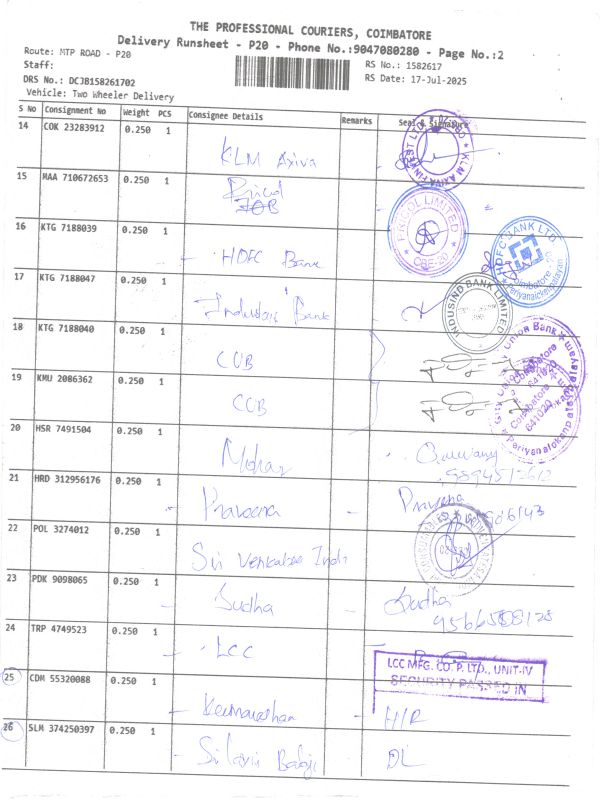 THE PROFESSIONAL COURIERS, COIMBATORE
Delivery Runsheet - P20 - Phone No.:9047080280 - Page No.:2
Route: MTP ROAD - P20
RS No.: 1582617
Staff:
RS Date: 17-Jul-2025
DRS No.: DCJB158261702
Vehicle: Two Wheeler Delivery
S No Consignment No Weight PCS Consignee Details Remarks Seal & Signature
14 COK 23283912 0.250 1 KLM Axiva
KLM AXIVA FINVEST LTD
15 MAA 710672653 0.250 1
LIMITED
CBE-20
16 KTG 7188039 0.250 1 - HDFC Bank
HDFC BANK LTD
Coimbatore-20
17 KTG 7188047 0.250 1 Indusind Bank
INDUSIND BANK LIMITED
18 KTG 7188040 0.250 1 CUB
19 KMU 2086362 0.250 1 CUB
City Union Bank
Coimbatore
641020
20 HSR 7491504 0.250 1
21 HRD 312956176 0.250 1 Praveena - Praveena
22 POL 3274012 0.250 1 Sri
23 PDK 9098065 0.250 1 - Sudha - Sudha
24 TRP 4749523 0.250 1 - LCC -
LCC MFG. CO. P. LTD., UNIT-IV
SECURITY PASSED IN
25 CDM 55320088 0.250 1 - - H/R
26 SLM 374250397 0.250 1 - - DL